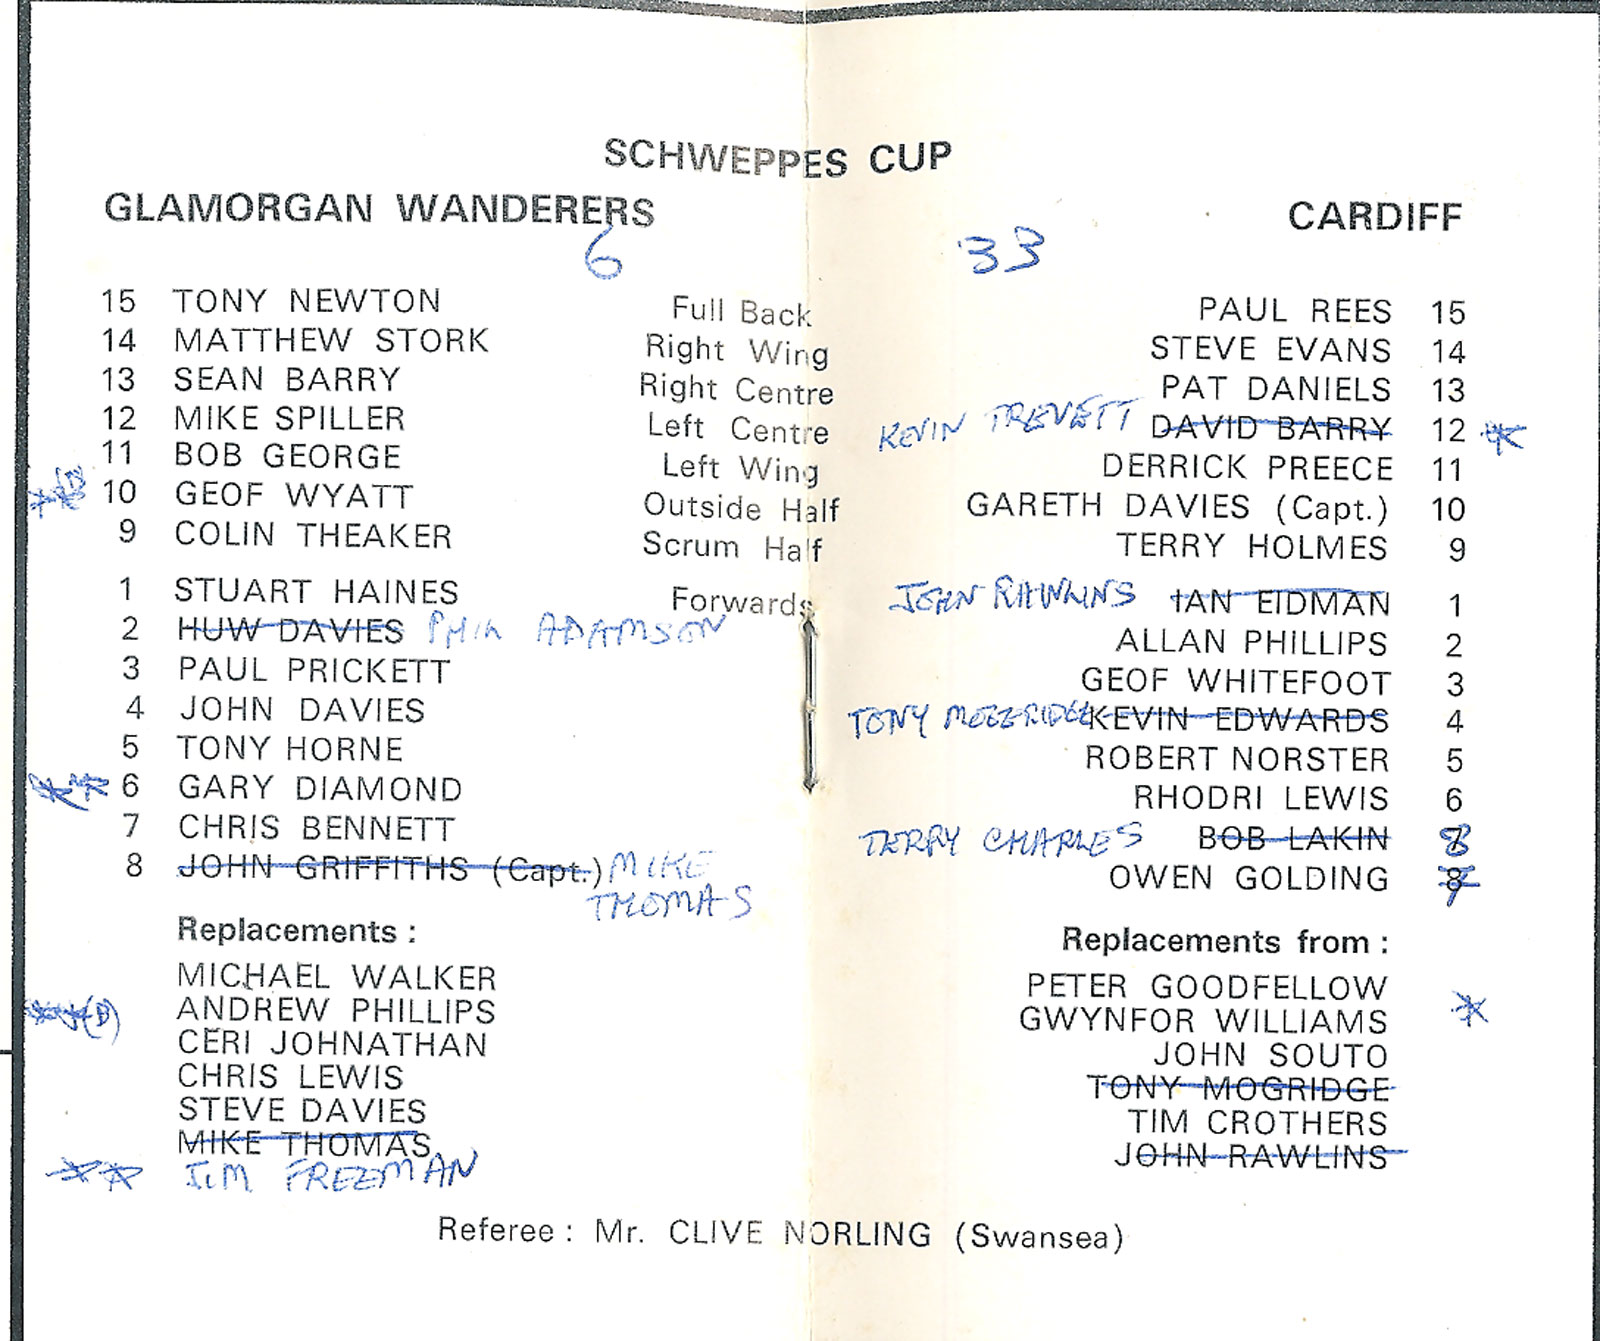 SCHWEPPES CUP
GLAMORGAN WANDERERS CARDIFF
6 33
15 TONY NEWTON Full Back PAUL REES 15
14 MATTHEW STORK Right Wing STEVE EVANS 14
13 SEAN BARRY Right Centre PAT DANIELS 13
12 MIKE SPILLER Left Centre KEVIN TREVETT DAVID BARRY 12
11 BOB GEORGE Left Wing DERRICK PREECE 11
10 GEOF WYATT Outside Half GARETH DAVIES (Capt.) 10
9 COLIN THEAKER Scrum Half TERRY HOLMES 9
1 STUART HAINES Forwards JOHN RAWLINS IAN EIDMAN 1
2 HUW DAVIES PHIL ADAMSON ALLAN PHILLIPS 2
3 PAUL PRICKETT GEOF WHITEFOOT 3
4 JOHN DAVIES TONY KEVIN EDWARDS 4
5 TONY HORNE ROBERT NORSTER 5
6 GARY DIAMOND RHODRI LEWIS 6
7 CHRIS BENNETT TERRY CHARLES BOB LAKIN 8
8 JOHN GRIFFITHS (Capt.) MIKE THOMAS OWEN GOLDING 7
Replacements : Replacements from :
MICHAEL WALKER PETER GOODFELLOW
ANDREW PHILLIPS GWYNFOR WILLIAMS
CERI JOHNATHAN JOHN SOUTO
CHRIS LEWIS TONY MOGRIDGE
STEVE DAVIES TIM CROTHERS
MIKE THOMAS JOHN RAWLINS
JIM FREEMAN
Referee : Mr. CLIVE NORLING (Swansea)